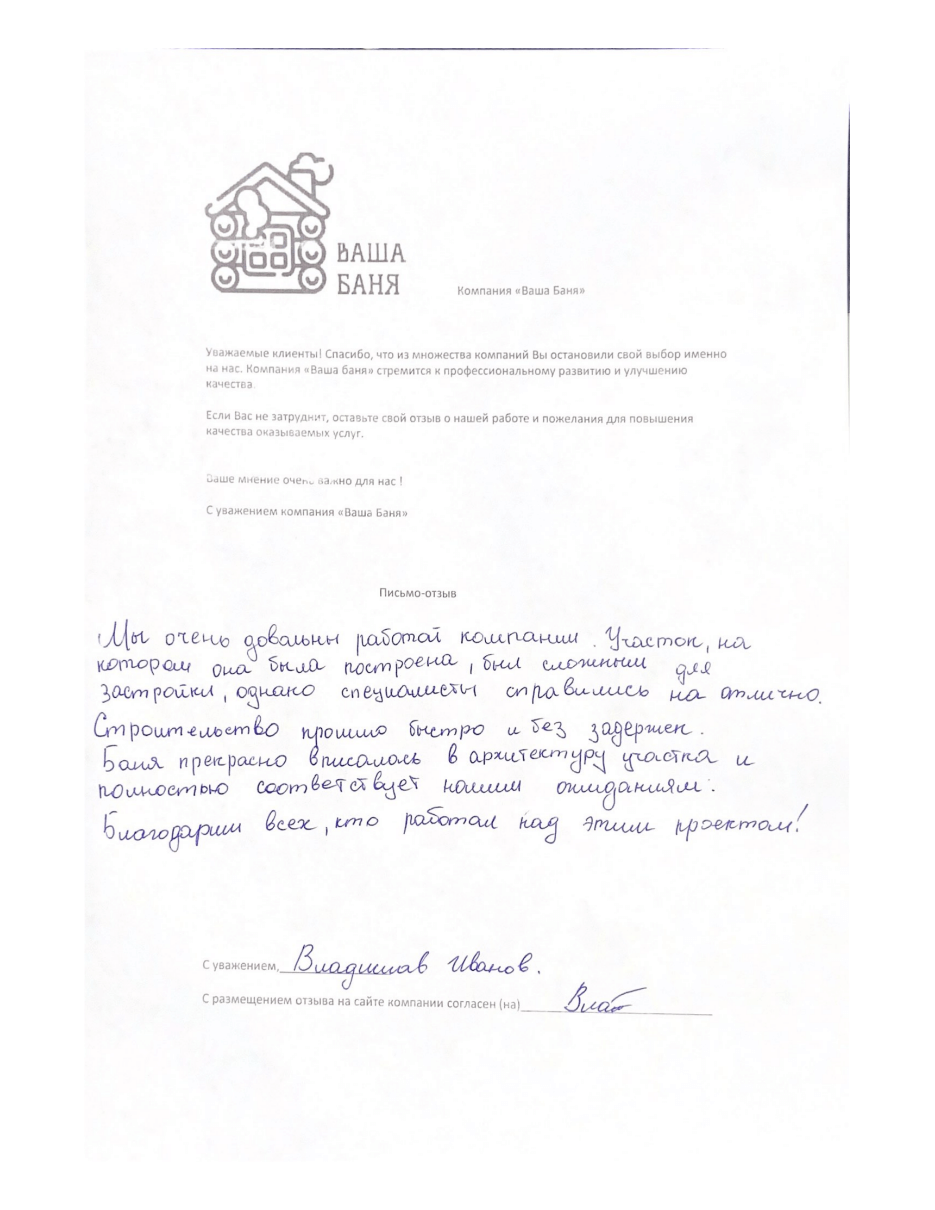 ВАША
БАНЯ
Компания «Ваша Баня»
Уважаемые клиенты! Спасибо, что из множества компаний Вы остановили свой выбор именно
на нас. Компания «Ваша баня» стремится к профессиональному развитию и улучшению
качества.
Если Вас не затруднит, оставьте свой отзыв о нашей работе и пожелания для повышения
качества оказываемых услуг.
Ваше мнение очень важно для нас !
С уважением компания «Ваша Баня»
Письмо-отзыв
Мы очень довольны работой компании. Участок, на
котором она была построена, был сложным для
застройки, однако специалисты справились на отлично.
Строительство прошло быстро и без задержек.
Баня прекрасно вписалась в архитектуру участка и
полностью соответствует нашим ожиданиям.
Благодарим всех, кто работал над этим проектом!
С уважением, Владислав Иванов.
С размещением отзыва на сайте компании согласен (на)